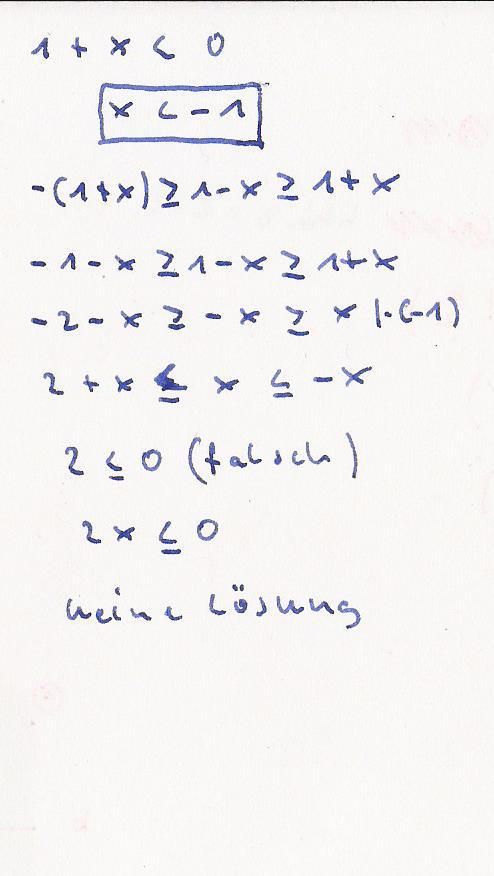 1 + x < 0
x < -1
-(1+x) ≥ 1-x ≥ 1+x
-1-x ≥ 1-x ≥ 1+x
-2-x ≥ -x ≥ x |·(-1)
2+x ≤ x ≤ -x
2 ≤ 0 (falsch)
2x ≤ 0
keine Lösung